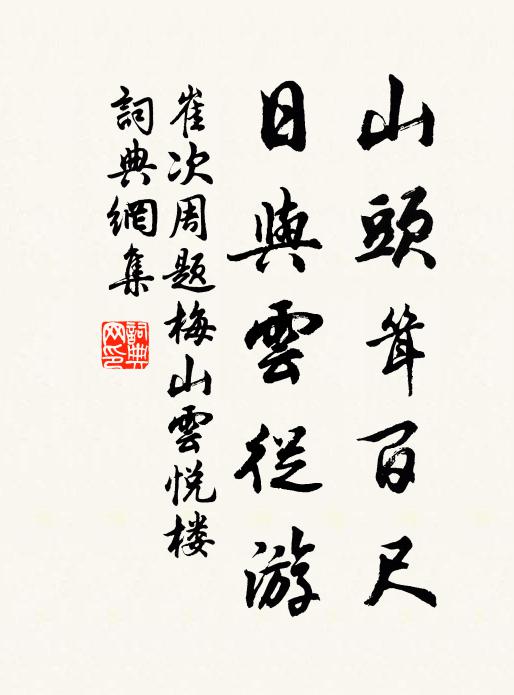 山頭耸百尺
日與雲從游
崔次周题梅山雲悦楼
詞典網集
詞典网印